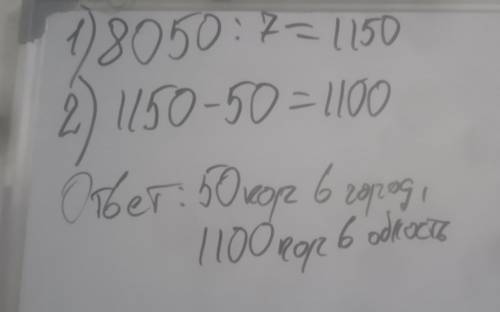 1) 8050 : 7 = 1150
2) 1150 - 50 = 1100
Ответ: 50 кор в город,
1100 кор в область